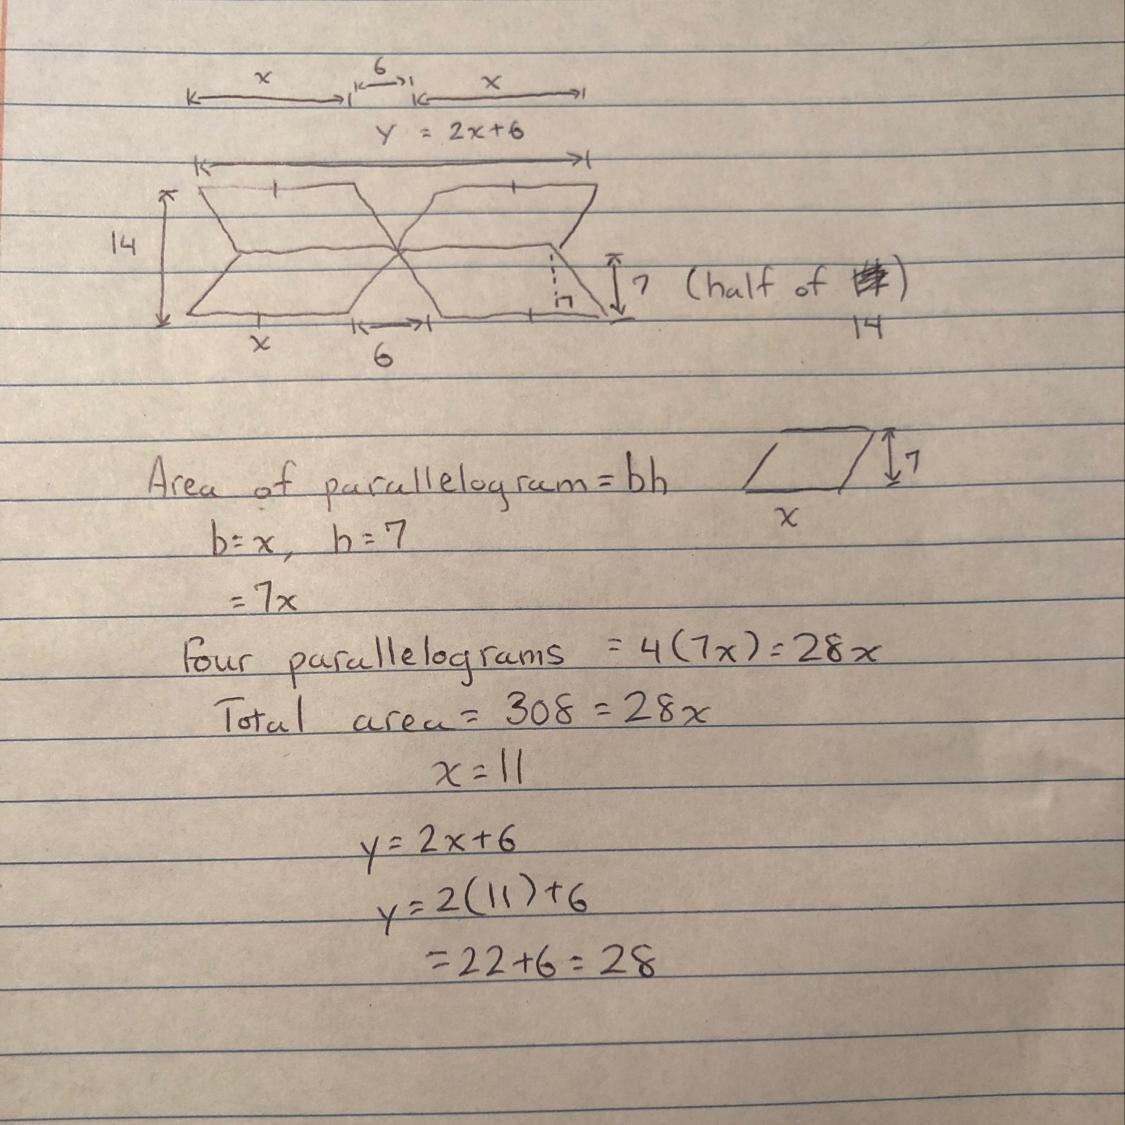 x 6 x
y = 2x+6
14
7 (half of )
14
x
6
Area of parallelogram = bh
7
x
b=x, h=7
= 7x
Four parallelograms = 4(7x) = 28x
Total area = 308 = 28x
x = 11
y = 2x+6
y = 2(11)+6
= 22+6 = 28